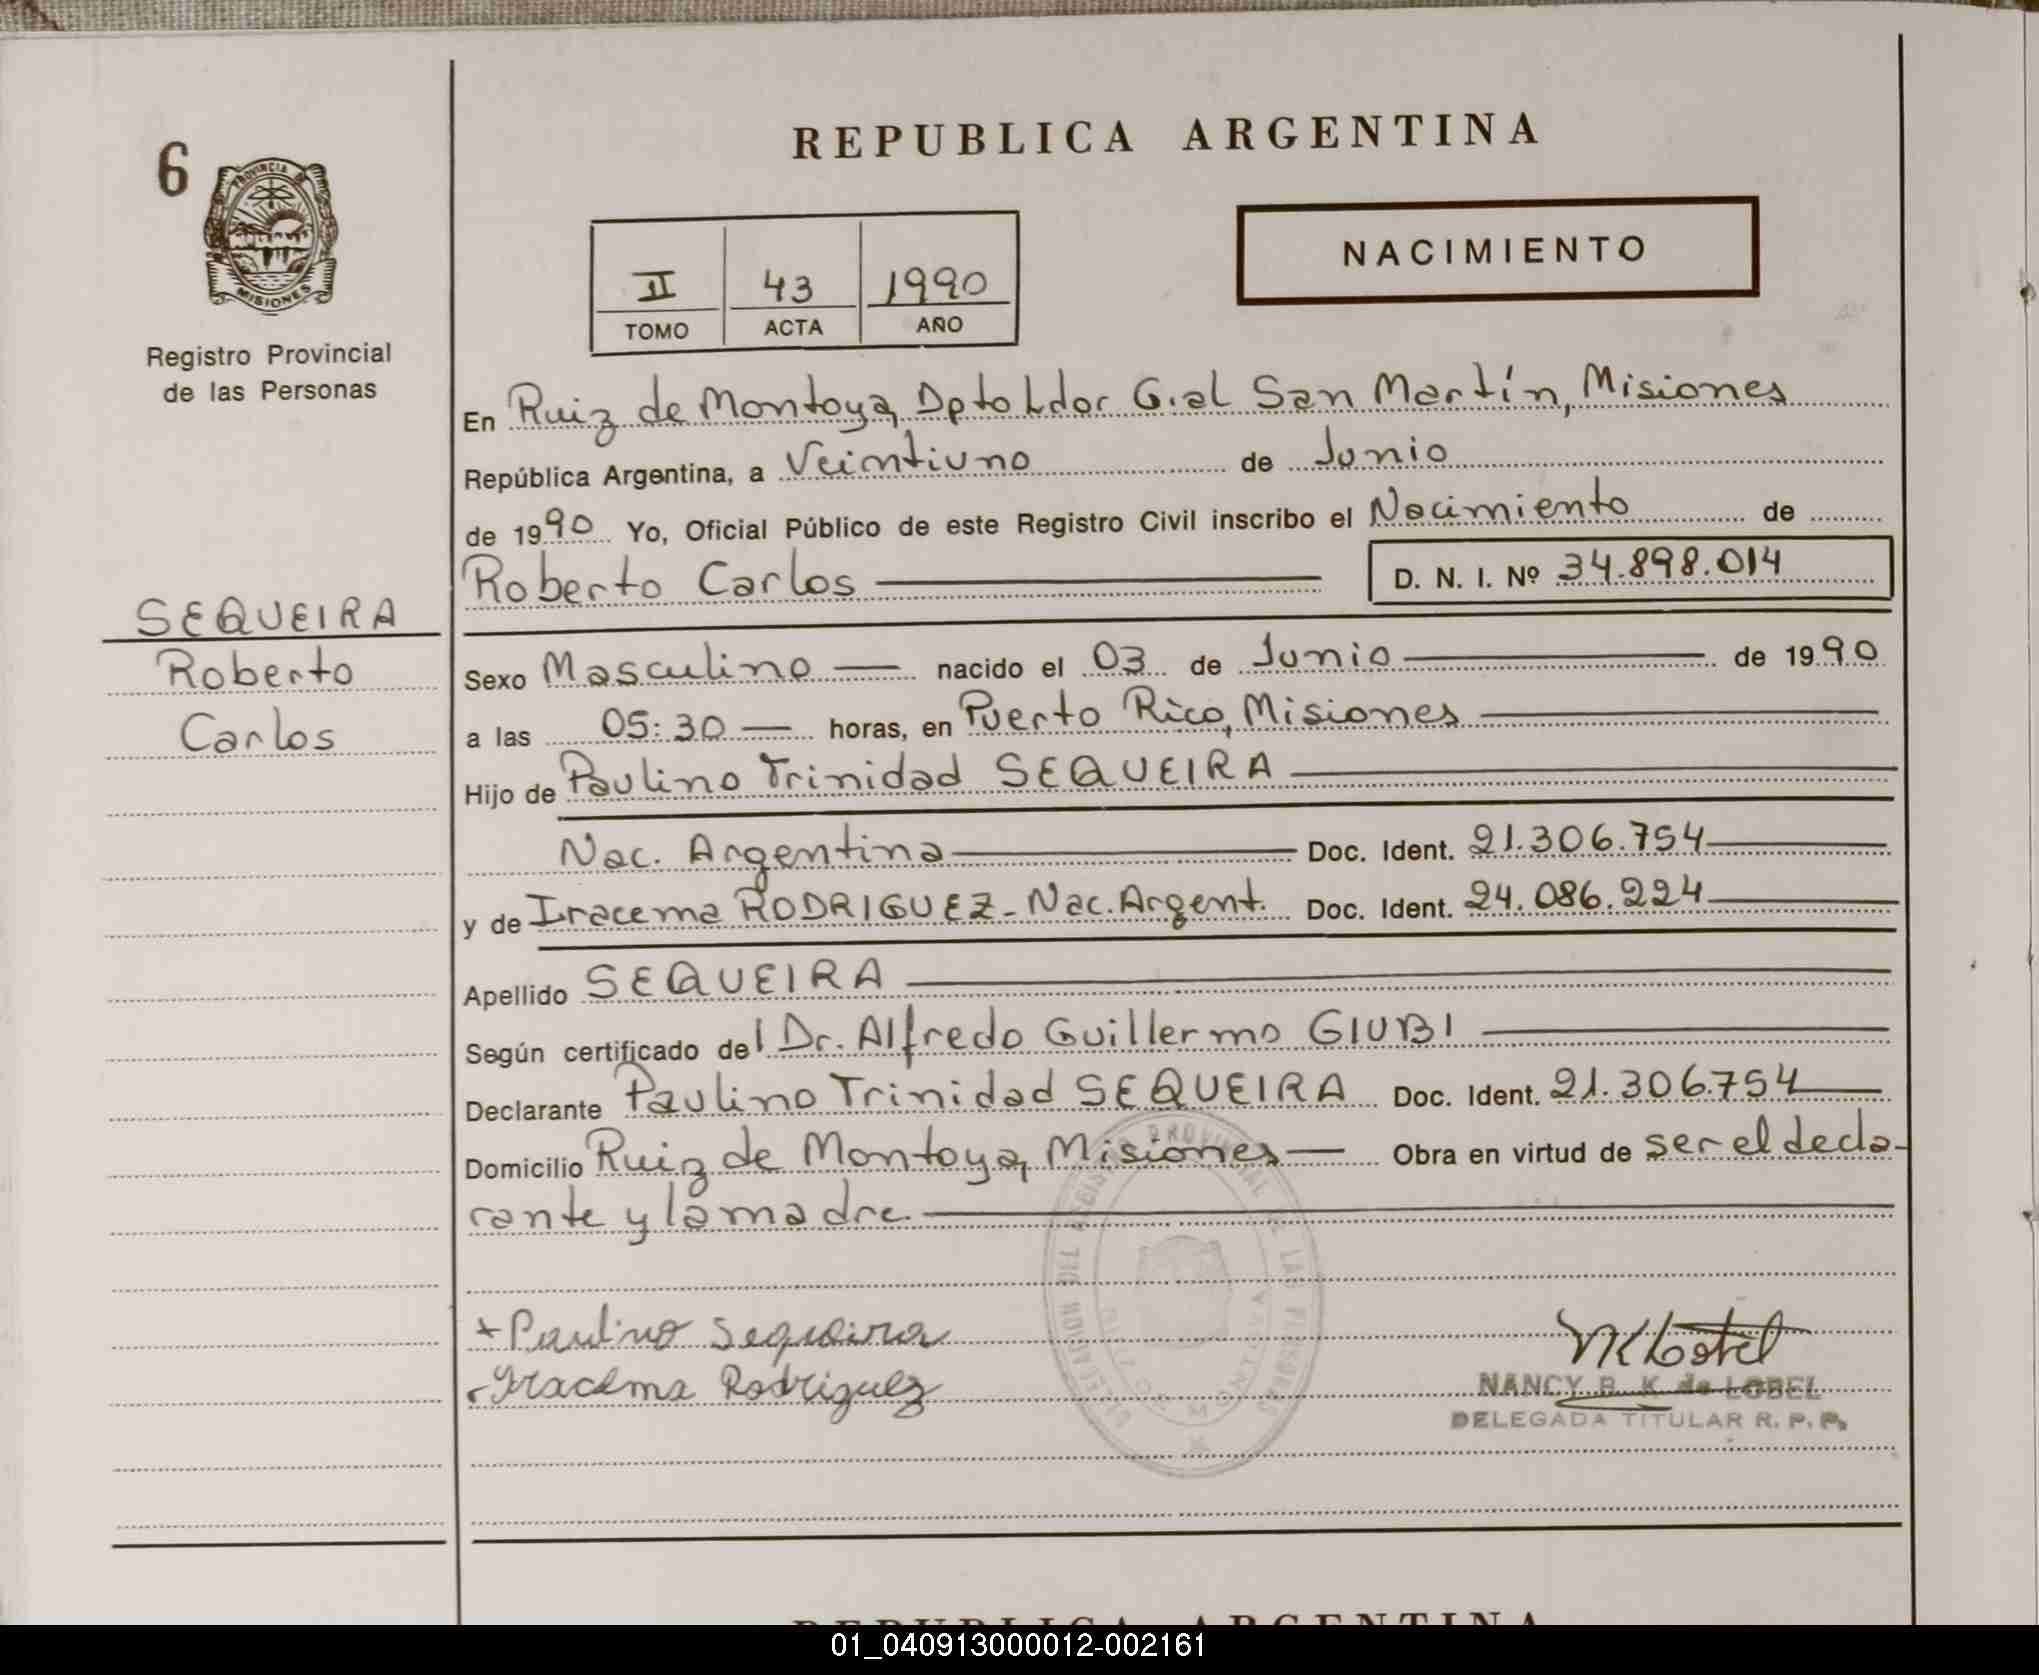 REPUBLICA ARGENTINA
6
PROVINCIA DE
MISIONES
Registro Provincial
de las Personas
II 43 1990
TOMO ACTA AÑO
NACIMIENTO
En Ruiz de Montoya, Dpto Ldor G.al San Martín, Misiones
República Argentina, a Veintiuno de Junio
de 1990 Yo, Oficial Público de este Registro Civil inscribo el Nacimiento de
Roberto Carlos D. N. I. Nº 34.898.014
SEQUEIRA
Roberto
Carlos
Sexo Masculino nacido el 03 de Junio de 1990
a las 05:30 horas, en Puerto Rico, Misiones
Hijo de Paulino Trinidad SEQUEIRA
Nac. Argentina Doc. Ident. 21.306.754
y de Iracema RODRIGUEZ - Nac. Argent. Doc. Ident. 24.086.224
Apellido SEQUEIRA
Según certificado del Dr. Alfredo Guillermo GIUBI
Declarante Paulino Trinidad SEQUEIRA Doc. Ident. 21.306.754
Domicilio Ruiz de Montoya, Misiones Obra en virtud de ser el decla-
rante y la madre.
DELEGACION DEL REGISTRO PROVINCIAL DE LAS PERSONAS
RUIZ DE MONTOYA
+ Paulino Sequeira
Iracema Rodriguez
NANCY B. K. de LOBEL
DELEGADA TITULAR R. P. P.
REPUBLICA ARGENTINA
01_040913000012-002161